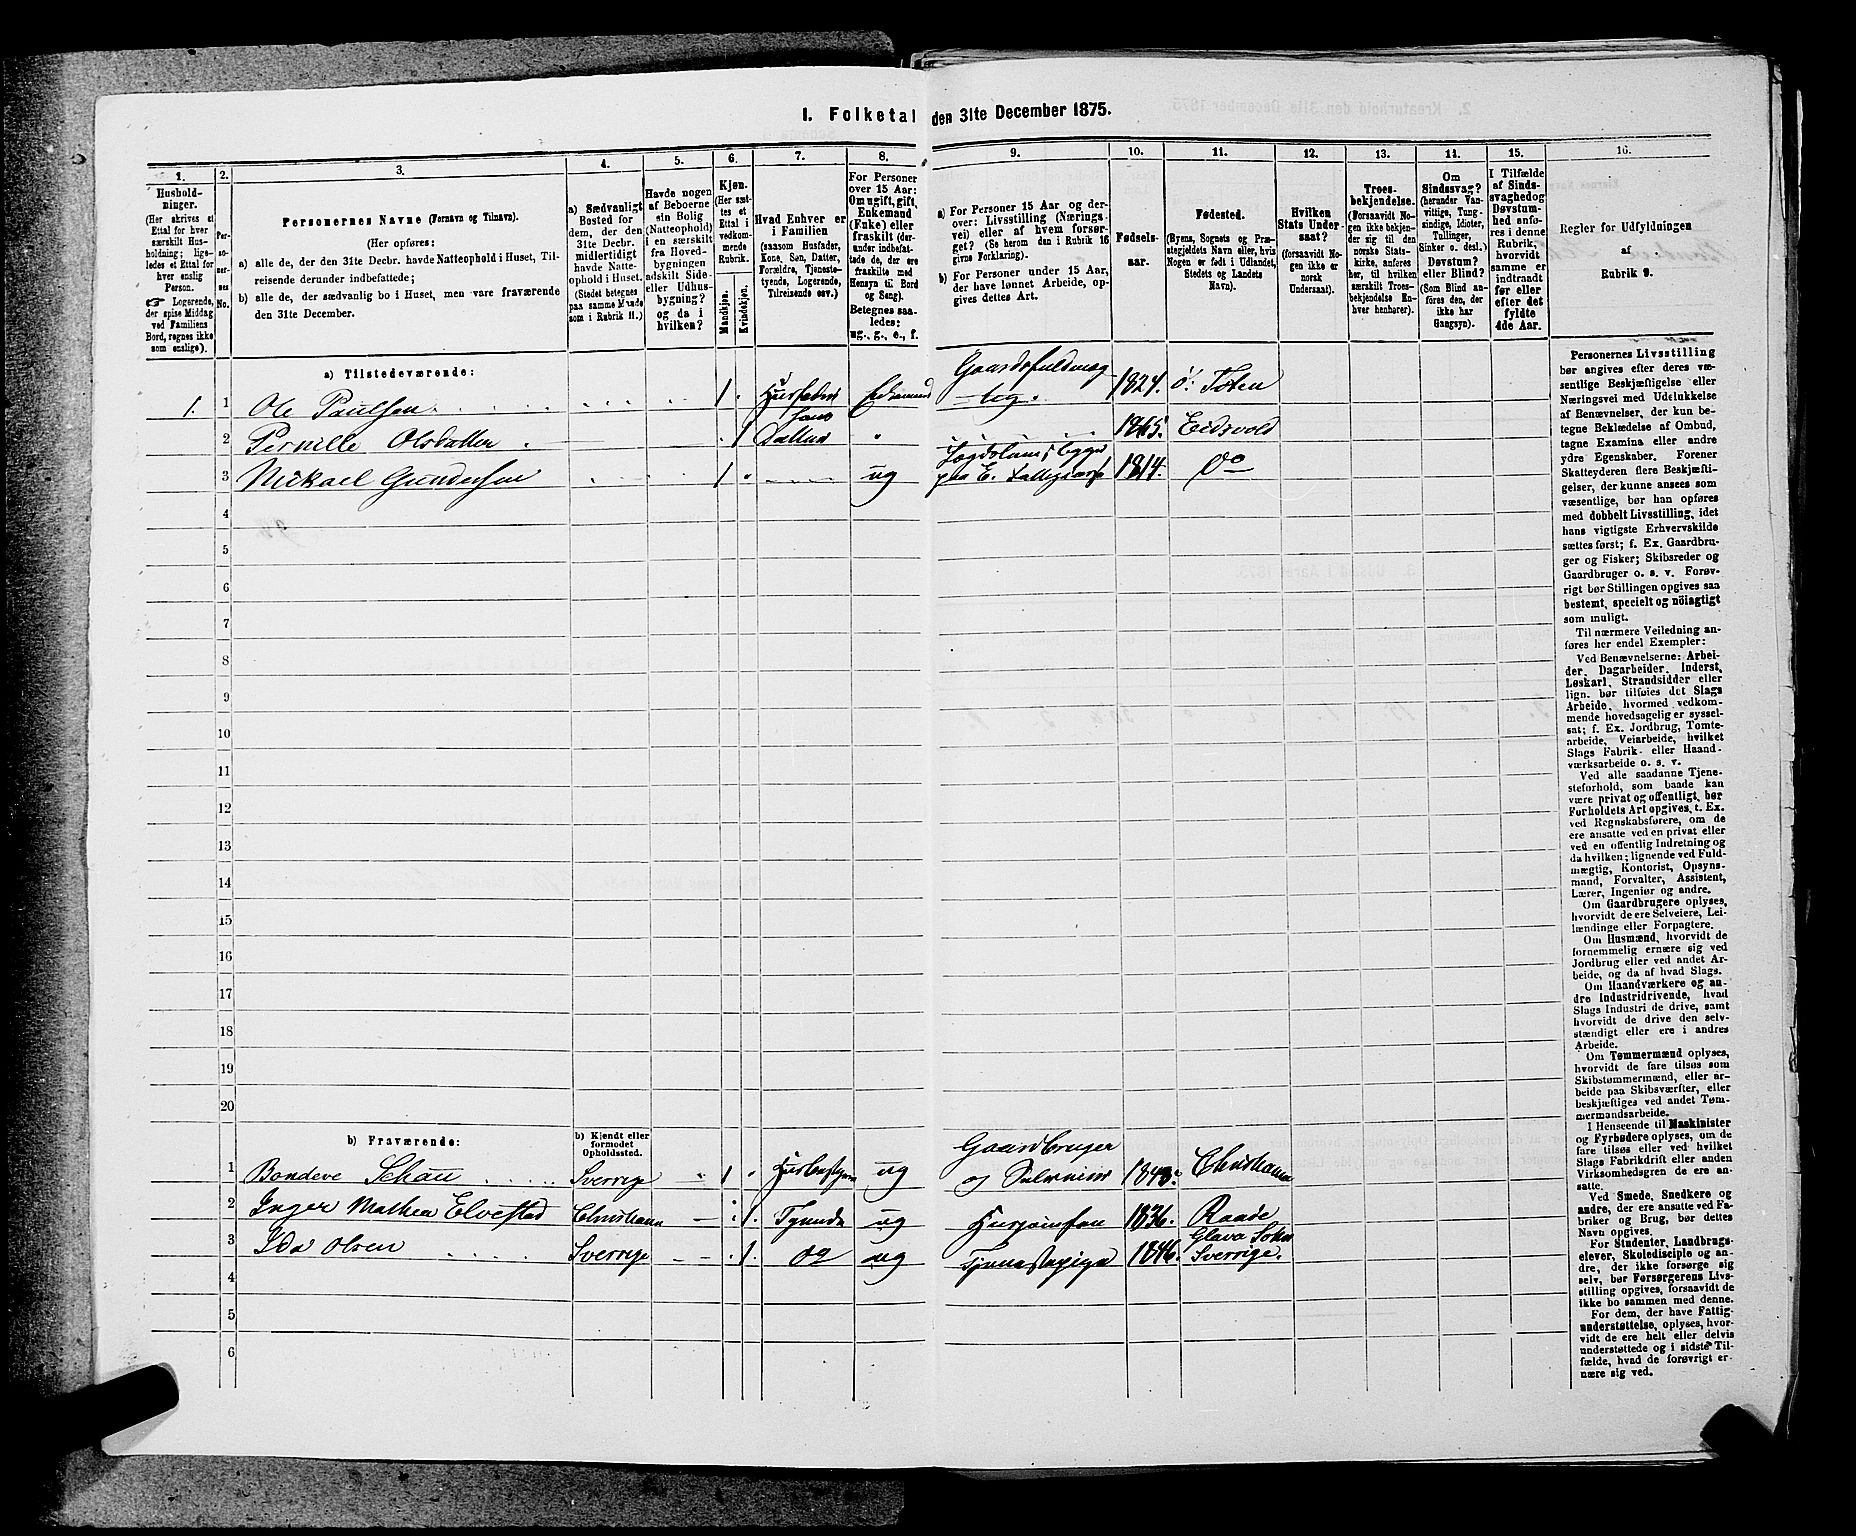 I. Folketal den 31te December 1875.
1. 2. 3. 4. 5. 6. 7. 8. 9. 10. 11. 12. 13. 14. 15. 16.
Hushold-
ninger.
(Her skrives et
Ettal for hver
særskilt Hus-
holdning; lige-
ledes et Ettal for
hver enslig
Person.
☞ Logerende,
der spise Middag
ved Familiens
Bord, regnes ikke
som enslige).
Per-
so-
ner-
nes
No.
Personernes Navne (Fornavn og Tilnavn).
(Her opføres:
a) alle de, der den 31te Decbr. havde Natteophold i Huset, Til-
reisende derunder indbefattede;
b) alle de, der sædvanlig bo i Huset, men vare fraværende
den 31te December.
a) Sædvanligt
Bosted for
dem, der den
31te Decbr.
midlertidigt
havde Natte-
ophold i Huset.
(Stedet betegnes
paa samme Maade
som i Rubrik 11.)
Havde nogen
af Beboerne
sin Bolig
(Natteophold)
i en særskilt
fra Hoved-
bygningen
adskilt Side-
eller Udhus-
bygning?
og da i
hvilken?
Kjøn.
(Her sæt-
tes et
Ettal i
vedkom-
mende
Rubrik.
Mandkjøn.
Kvindekjøn.
Hvad Enhver er
i Familien
(saasom Husfader,
Kone, Søn, Datter,
Forældre, Tjeneste-
tyende, Logerende,
Tilreisende osv.)
For Personer
over 15 Aar:
Om ugift, gift,
Enkemand
(Enke) eller
fraskilt (der-
under indbefat-
tede de, der ere
fraskilte med
Hensyn til Bord
og Seng).
Betegnes saa-
ledes:
ug., g., e., f.
a) For Personer 15 Aar og der-
over: Livsstilling (Nærings-
vei) eller af hvem forsør-
get? (Se herom den i Rubrik 16
givne Forklaring).
b) For Personer under 15 Aar,
der have lønnet Arbeide, op-
gives dettes Art.
Fødsels-
aar.
Fødested.
(Byens, Sognets og Præ-
stegjeldets Navn eller, hvis
Nogen er født i Udlandet,
Stedets og Landets
Navn).
Hvilken
Stats Under-
saat?
(forsaavidt No-
gen ikke er
norsk
Undersaat).
Troes-
bekjendelse.
(Forsaavidt No-
gen ikke bekjen-
der sig til den
norske Stats-
kirke, anføres
her, til hvilken
særskilt Troes-
bekjendelse En-
hver henhører).
Om
Sindssvag?
(herunder Van-
vittige, Tung-
sindige, Idioter,
Tullinger,
Sinker o. desl.)
Døvstum?
eller Blind?
(Som Blind an-
føres den, der
ikke har
Gangsyn).
I Tilfælde
af Sinds-
svaghed og
Døvstum-
hed anfø-
res i denne
Rubrik,
hvorvidt
samme er
indtraadt
før eller
efter det
fyldte
4de Aar.
Regler for Udfyldningen
af
Rubrik 9.
a) Tilstedeværende:
1. 1 Ole Paulsen 1 Husfader Enkemand Gaardsfuldmæg-
tig. 1824. Ø. Toten
2 Pernille Olsdatter 1 hans Datter 1865. Eidsvold
3 Mickael Gundersen 1 ug 1814. Do
4
5
6
7
8
9
10
11
12
13
14
15
16
17
18
19
20
b) Fraværende:
b) Kjendt eller
formodet
Opholdssted.
1 Bondeve Schau Sverrige 1 Husbestyrer ug Gaardbruger
og Selveier 1843. Christiania
2 Inger Mathea Elvestad Christiania 1. Tyende ug Husjomfru 1836. Raade
3 Ida Olsen Sverrige 1. Do ug Tjenestepige 1846. Glava Sokn
Sverrige.
4
5
6
Personernes Livsstilling
bør angives efter deres væ-
sentlige Beskjæftigelse eller
Næringsvei med Udelukkelse
af Benævnelser, der kun be-
tegne Beklædelse af Ombud,
tagne Examina eller andre
ydre Egenskaber. Forener
Skatteyderen flere Beskjæfti-
gelser, der kunne ansees som
væsentlige, bør han opføres
med dobbelt Livsstilling, idet
hans vigtigste Erhvervskilde
sættes først; f. Ex. Gaardbru-
ger og Fisker; Skibsreder og
Gaardbruger o. s. v. Forøv-
rigt bør Stillingen opgives saa
bestemt, specielt og nöiagtigt
som muligt.
Til nærmere Veiledning an-
føres her endel Exempler:
Ved Benævnelserne: Arbei-
der, Dagarbeider, Inderst,
Løskarl, Strandsidder eller
lign. bør tilføies det Slags
Arbeide, hvormed vedkom-
mende hovedsagelig er syssel-
sat; f. Ex. Jordbrug, Tomte-
arbeide, Veiarbeide, hvilket
Slags Fabrik- eller Haand-
værksarbeide o. s. v.
Ved alle saadanne Tjene-
steforhold, som baade kan
være privat og offentligt, bør
Forholdets Art opgives, t. Ex.
ved Regnskabsførere, om de
ere ansatte ved en privat eller
ved en offentlig Indretning og
da hvilken; lignende ved Fuld-
mægtig, Kontorist, Opsyns-
mand, Forvalter, Assistent,
Lærer, Ingeniør og andre.
Om Gaardbrugere oplyses,
hvorvidt de ere Selveiere, Lei-
lændinge eller Forpagtere.
Om Husmænd, hvorvidt de
fornemmelig ernære sig ved
Jordbrug eller ved andet Ar-
beide, og da af hvad Slags.
Om Haandværkere og an-
dre Industridrivende, hvad
Slags Industri de drive, samt
hvorvidt de drive den selv-
stændigt eller ere i andres
Arbeide.
Om Tømmermænd oplyses,
hvorvidt de fare tilsøs som
Skibstømmermænd, eller ar-
beide paa Skibsværfter, eller
beskjæftiges ved andet Tøm-
mermandsarbeide.
I Henseende til Maskinister
og Fyrbødere oplyses, om de
fare tilsøs eller ved hvilket
Slags Fabrikdrift eller anden
Virksomhedsgren de ere an-
satte.
Ved Smede, Snedkere og
andre, der ere ansatte ved Fa-
briker og Brug, bør dettes
Navn opgives.
For Studenter, Landbrugs-
elever, Skoledisciple og an-
dre, der ikke forsørge sig
selv, bør Forsørgerens Livs-
stilling opgives, forsaavidt de
ikke bo sammen med denne.
For dem, der have Fattig-
understøttelse, oplyses, hvor-
vidt de ere helt eller delvis
understøttede og i sidste Til-
fælde, hvad de forøvrigt er-
nære sig ved.